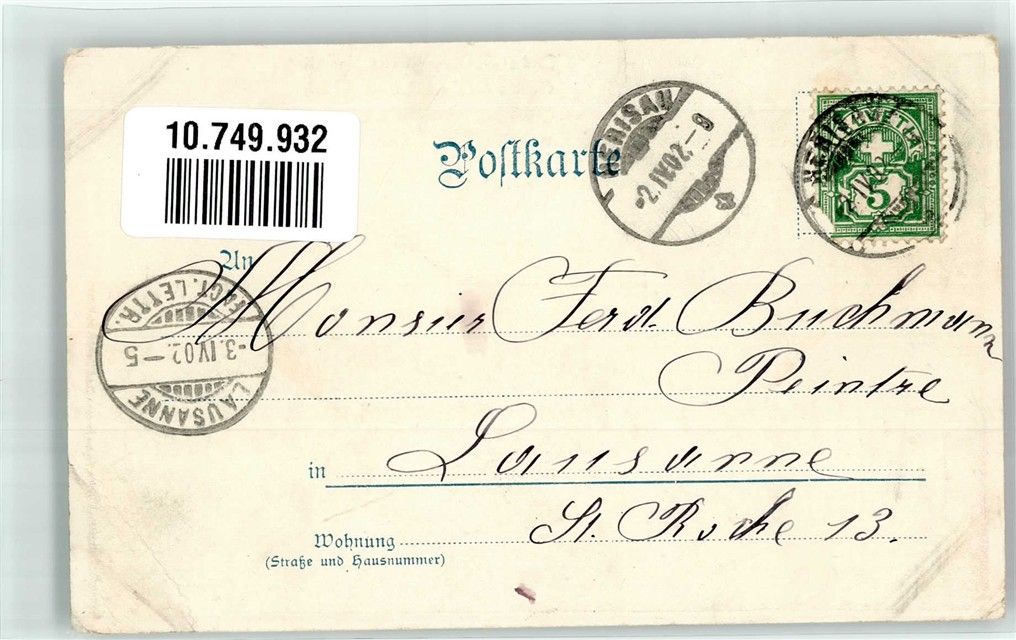 10.749.932
Postkarte
HERISAU
-2.IV.02.-9
HELVETIA
5
An
Monsiur Ferd. Buchmann
FACT. LETTR.
-3.IV.02.-5
LAUSANNE
Peintre
in Lausanne
St. Roche 13.
Wohnung
(Straße und Hausnummer)